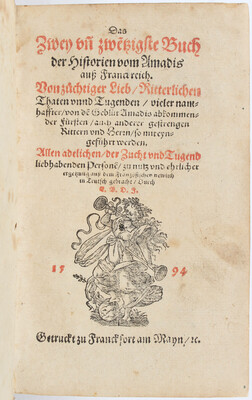 Das
Zwey vñ zwẽtzigste Buch
der Historien vom Amadis
auß Franckreich.
Von züchtiger Lieb / Ritterlichen
Thaten vnnd Tugenden / vieler nam-
haffter / von dẽ Geblüt Amadis abkommen-
der Fürsten / auch anderer gestrengen
Rittern und Herrn / so mit eyn-
geführt werden.
Allen adelichen / der Zucht vnd Tugend
liebhabenden Personẽ / zu nutz vnd ehrlicher
ergetzung auß dem Frantzösischen newlich
in Teutsch gebracht / Durch
1594
Getruckt zu Franckfort am Mayn / ꝛc.